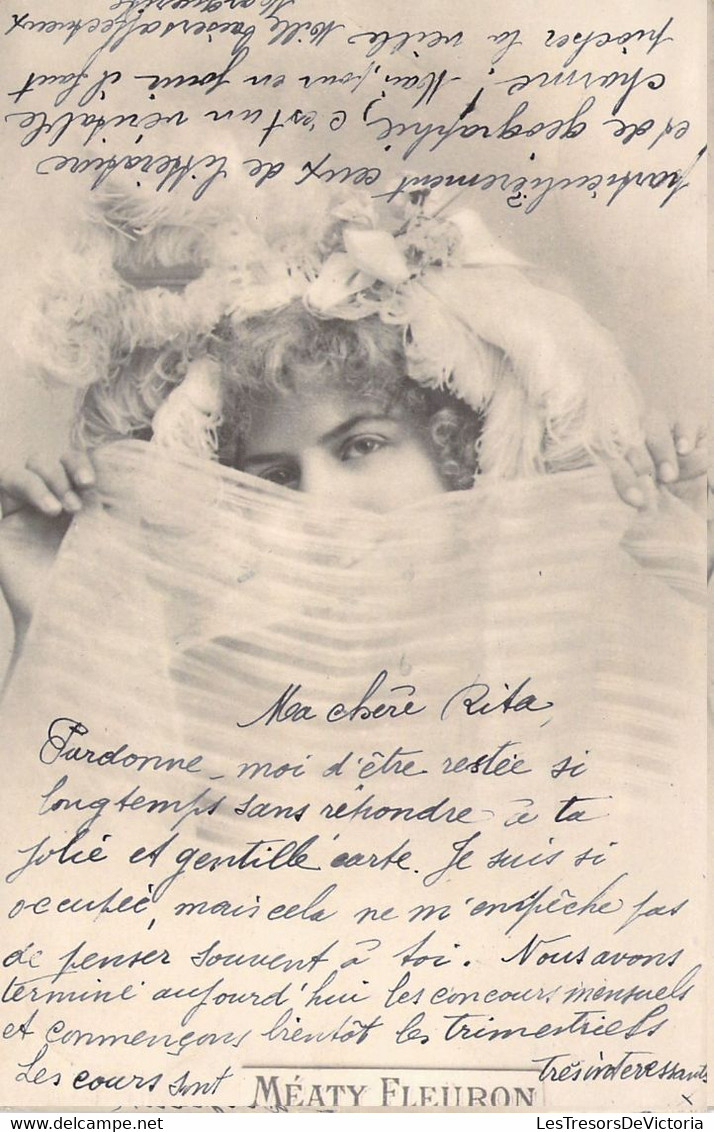 Ma chère Rita,
Pardonne-moi d'être restée si
longtemps sans répondre à ta
jolie et gentille carte. Je suis si
occupée, mais cela ne m'empêche pas
de penser souvent à toi. Nous avons
terminé aujourd'hui les concours mensuels
et commençons bientôt les trimestriels
Les cours sont très interessants
MÉATY FLEURON
particulièrement ceux de littérature
et de géographie, c'est un véritable
charme! Mais, pour en jouir il faut
piocher la veille Mille baisers affectueux
Marguerite
LesTresorsDeVictoria.com